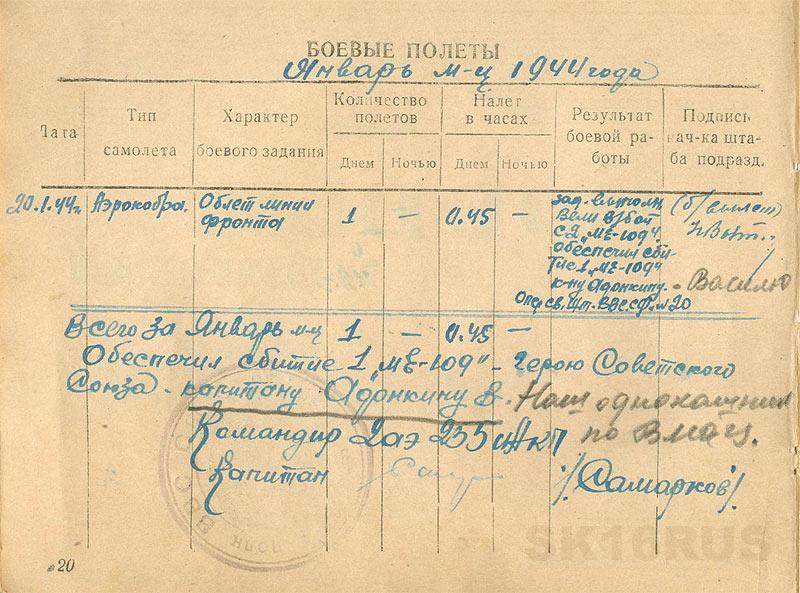 БОЕВЫЕ ПОЛЕТЫ
Январь м-ц 1944 года
Дата
Тип самолета
Характер боевого задания
Количество полетов
Днем Ночью
Налет в часах
Днем Ночью
Результат боевой ра- боты
Подпись нач-ка шта- ба подразд.
20.1.44г. Аэрокобра. Облет линии фронта 1 — 0.45 —
зад. выполн.
Вели в/бой
с 2 „МЕ-109".
обеспечил сби-
тие 1 „МЕ-109"
к-ну Адонкину.
Опер. св. Шт. ВВС СФ. №20
(б/вылет)
- Василю
Всего за Январь м-ц 1 — 0.45 —
Обеспечил сбитие 1 „МЕ-109" - Герою Советского
Союза - капитану Адонкину В.
Наш однокашник
по ВМАУ.
Командир 2 аэ 255 ИАП
Капитан /Самарков/.
ПОЛК
20
SK16RUS